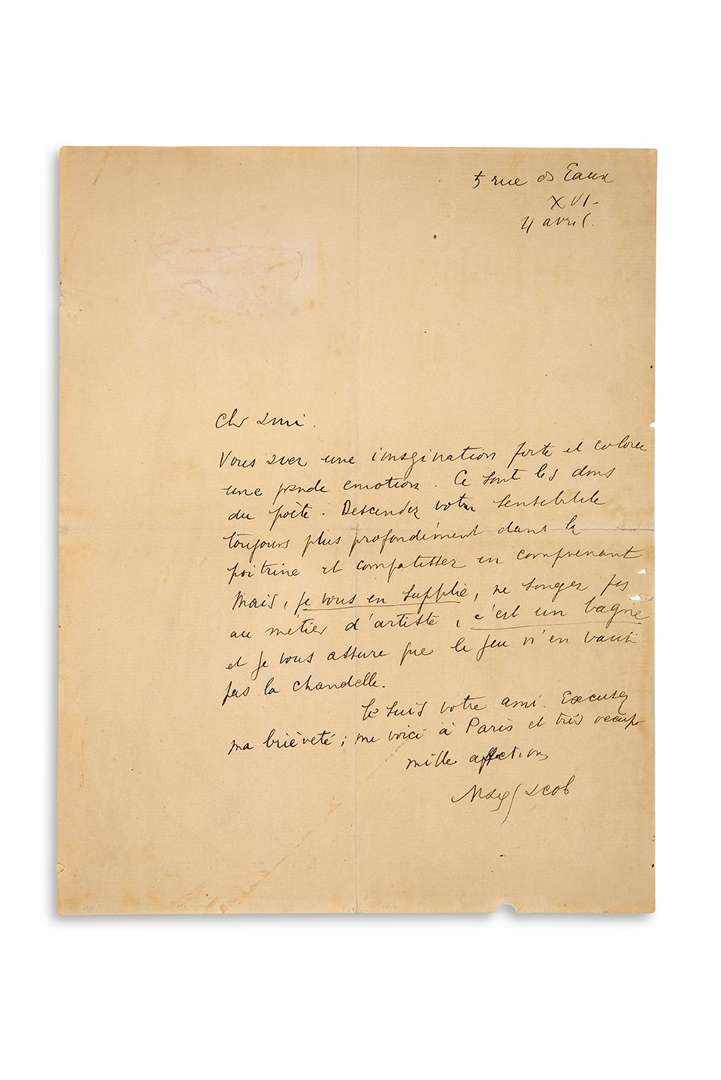 5 rue des Eaux
XVI-
4 avril.
Cher Ami.
Vous avez une imagination forte et colorée
une grande emotion. Ce sont les dons
du poète. Descendez votre sensibilité
toujours plus profondément dans la
poitrine et compatissez en comprenant
Mais, je vous en supplie, ne songez pas
au métier d'artiste, c'est un bagne
et je vous assure que le jeu n'en vaut
pas la chandelle.
Je suis votre ami. Excusez
ma brièveté ; me voici à Paris et très occupé
mille affections
Max Jacob